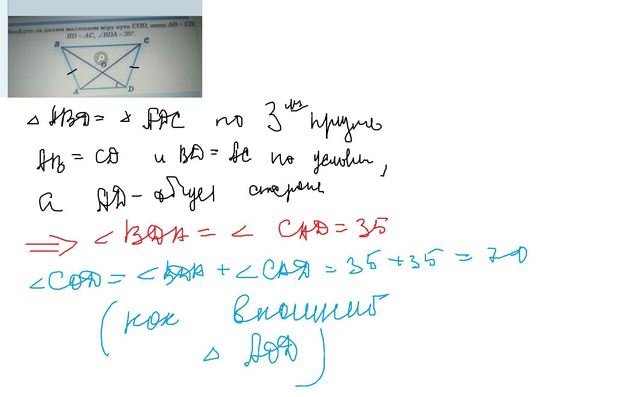 Знайдіть за даним малюнком міру кута COD, якщо AB = CD,
BD = AC, ∠BDA = 35°.
B
C
O
A
D
△ ABD = △ DAC по 3
AB = CD и BD = AC по условию,
а AD - общая сторона
⇒ ∠ BDA = ∠ CAD = 35
∠COD = ∠BDA + ∠CAD = 35 + 35 = 70
(как внешний
△ AOD)